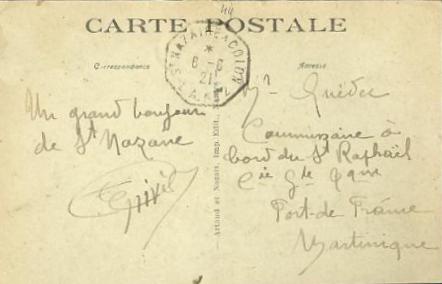 44
CARTE POSTALE
Correspondance
Adresse
ST NAZAIRE A COLON
*
6-6
21
L.A. N°2
Un grand bonjour
de St Nazaire
Mr Quédec
Commissaire à
bord du St Raphaël
Cie Gle Tque
Port-de-France
Martinique
Artaud et Nozais, Imp. Edit.